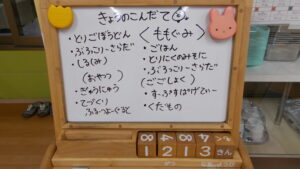 きょうのこんだて
・とりごぼうどん
・ぶろっこりーさらだ
・しる(み)
(おやつ)
・ぎゅうにゅう
・てづくり
<ももぐみ>
・ごはん
・とりにくのみそに
・ぶろっこりーさらだ
(ごごしょく)
・すーぷすぱげてぃー
・くだもの
8 8 4
1 2 1 3 さん